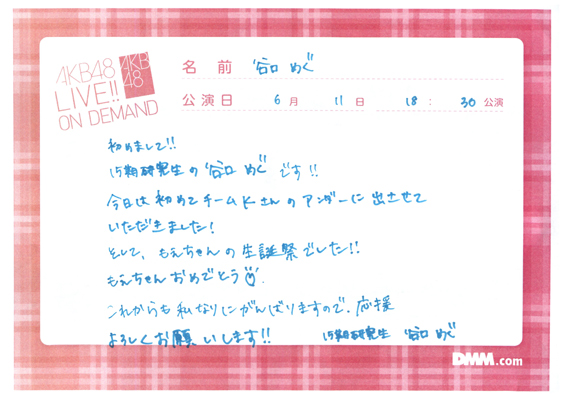 AKB48
LIVE!!
ON DEMAND
AKB
48
名前 谷口 めぐ
公演日 6月 11日 18:30公演
初めまして!!
15期研究生の 谷口 めぐ です!!
今日は初めてチームKさんのアンダーに出させて
いただきました!
そして、もえちゃんの生誕祭でした!!
もえちゃんおめでとう
これからも私なりにがんばりますので、応援
よろしくお願いします!!
15期研究生 谷口 めぐ
DMM.com